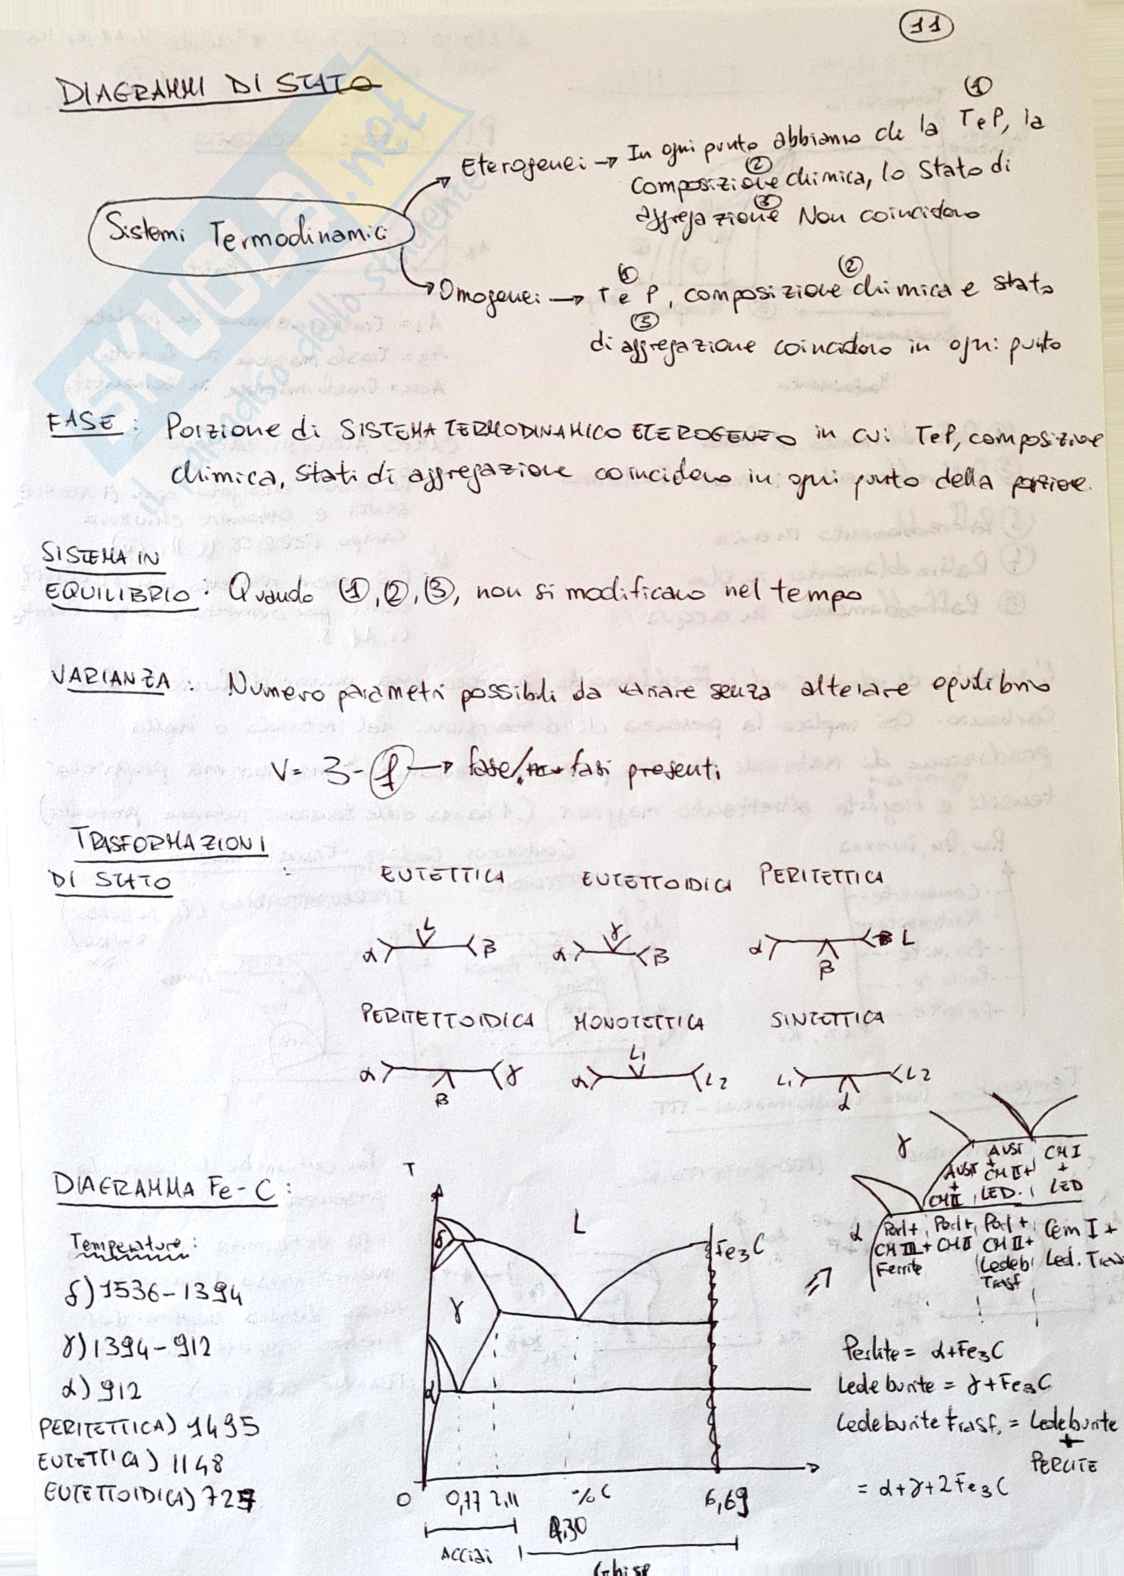 11
DIAGRAMMI DI STATO
Sistemi Termodinamici
Eterogenei → In ogni punto abbiamo che la T e P, la
①
composizione chimica, lo Stato di
②
aggregazione Non coincidono
③
Omogenei → T e P, composizione chimica e stato
① ②
di aggregazione coincidono in ogni punto
③
FASE: Porzione di SISTEMA TERMODINAMICO ETEROGENEO in cui T e P, composizione
chimica, stati di aggregazione coincidono in ogni punto della porzione.
SISTEMA IN
EQUILIBRIO: Quando ①, ②, ③, non si modificano nel tempo
VARIANZA: Numero parametri possibili da variare senza alterare equilibrio
V = 3 - f → fase/fasi presenti
TRASFORMAZIONI
DI STATO :
EUTETTICA EUTETTOIDICA PERITETTICA
α L β α γ β α β L
PERITETTOIDICA MONOTETTICA SINTETTICA
α β γ α L1 L2 L1 α L2
DIAGRAMMA Fe-C:
Temperature:
δ) 1536-1394
γ) 1394-912
α) 912
PERITETTICA) 1495
EUTETTICA) 1148
EUTETTOIDICA) 727
T
L
δ
γ
α
Fe3C
0 0,77 2,11 %C 6,69
4,30
Acciai
Ghise
γ
AUST + CM II
AUST + CM II + LED.
CM I + LED
α
Perl + CM III + Ferrite
Perl + CM II
Perl + CM II + Ledeb Trasf
Cem I + Led. Tras
Perlite = α+Fe3C
Ledeburite = γ+Fe3C
Ledeburite trasf. = Ledeburite
+
PERLITE
= α+γ+2Fe3C
SKUOLA.net
il paradiso dello studente